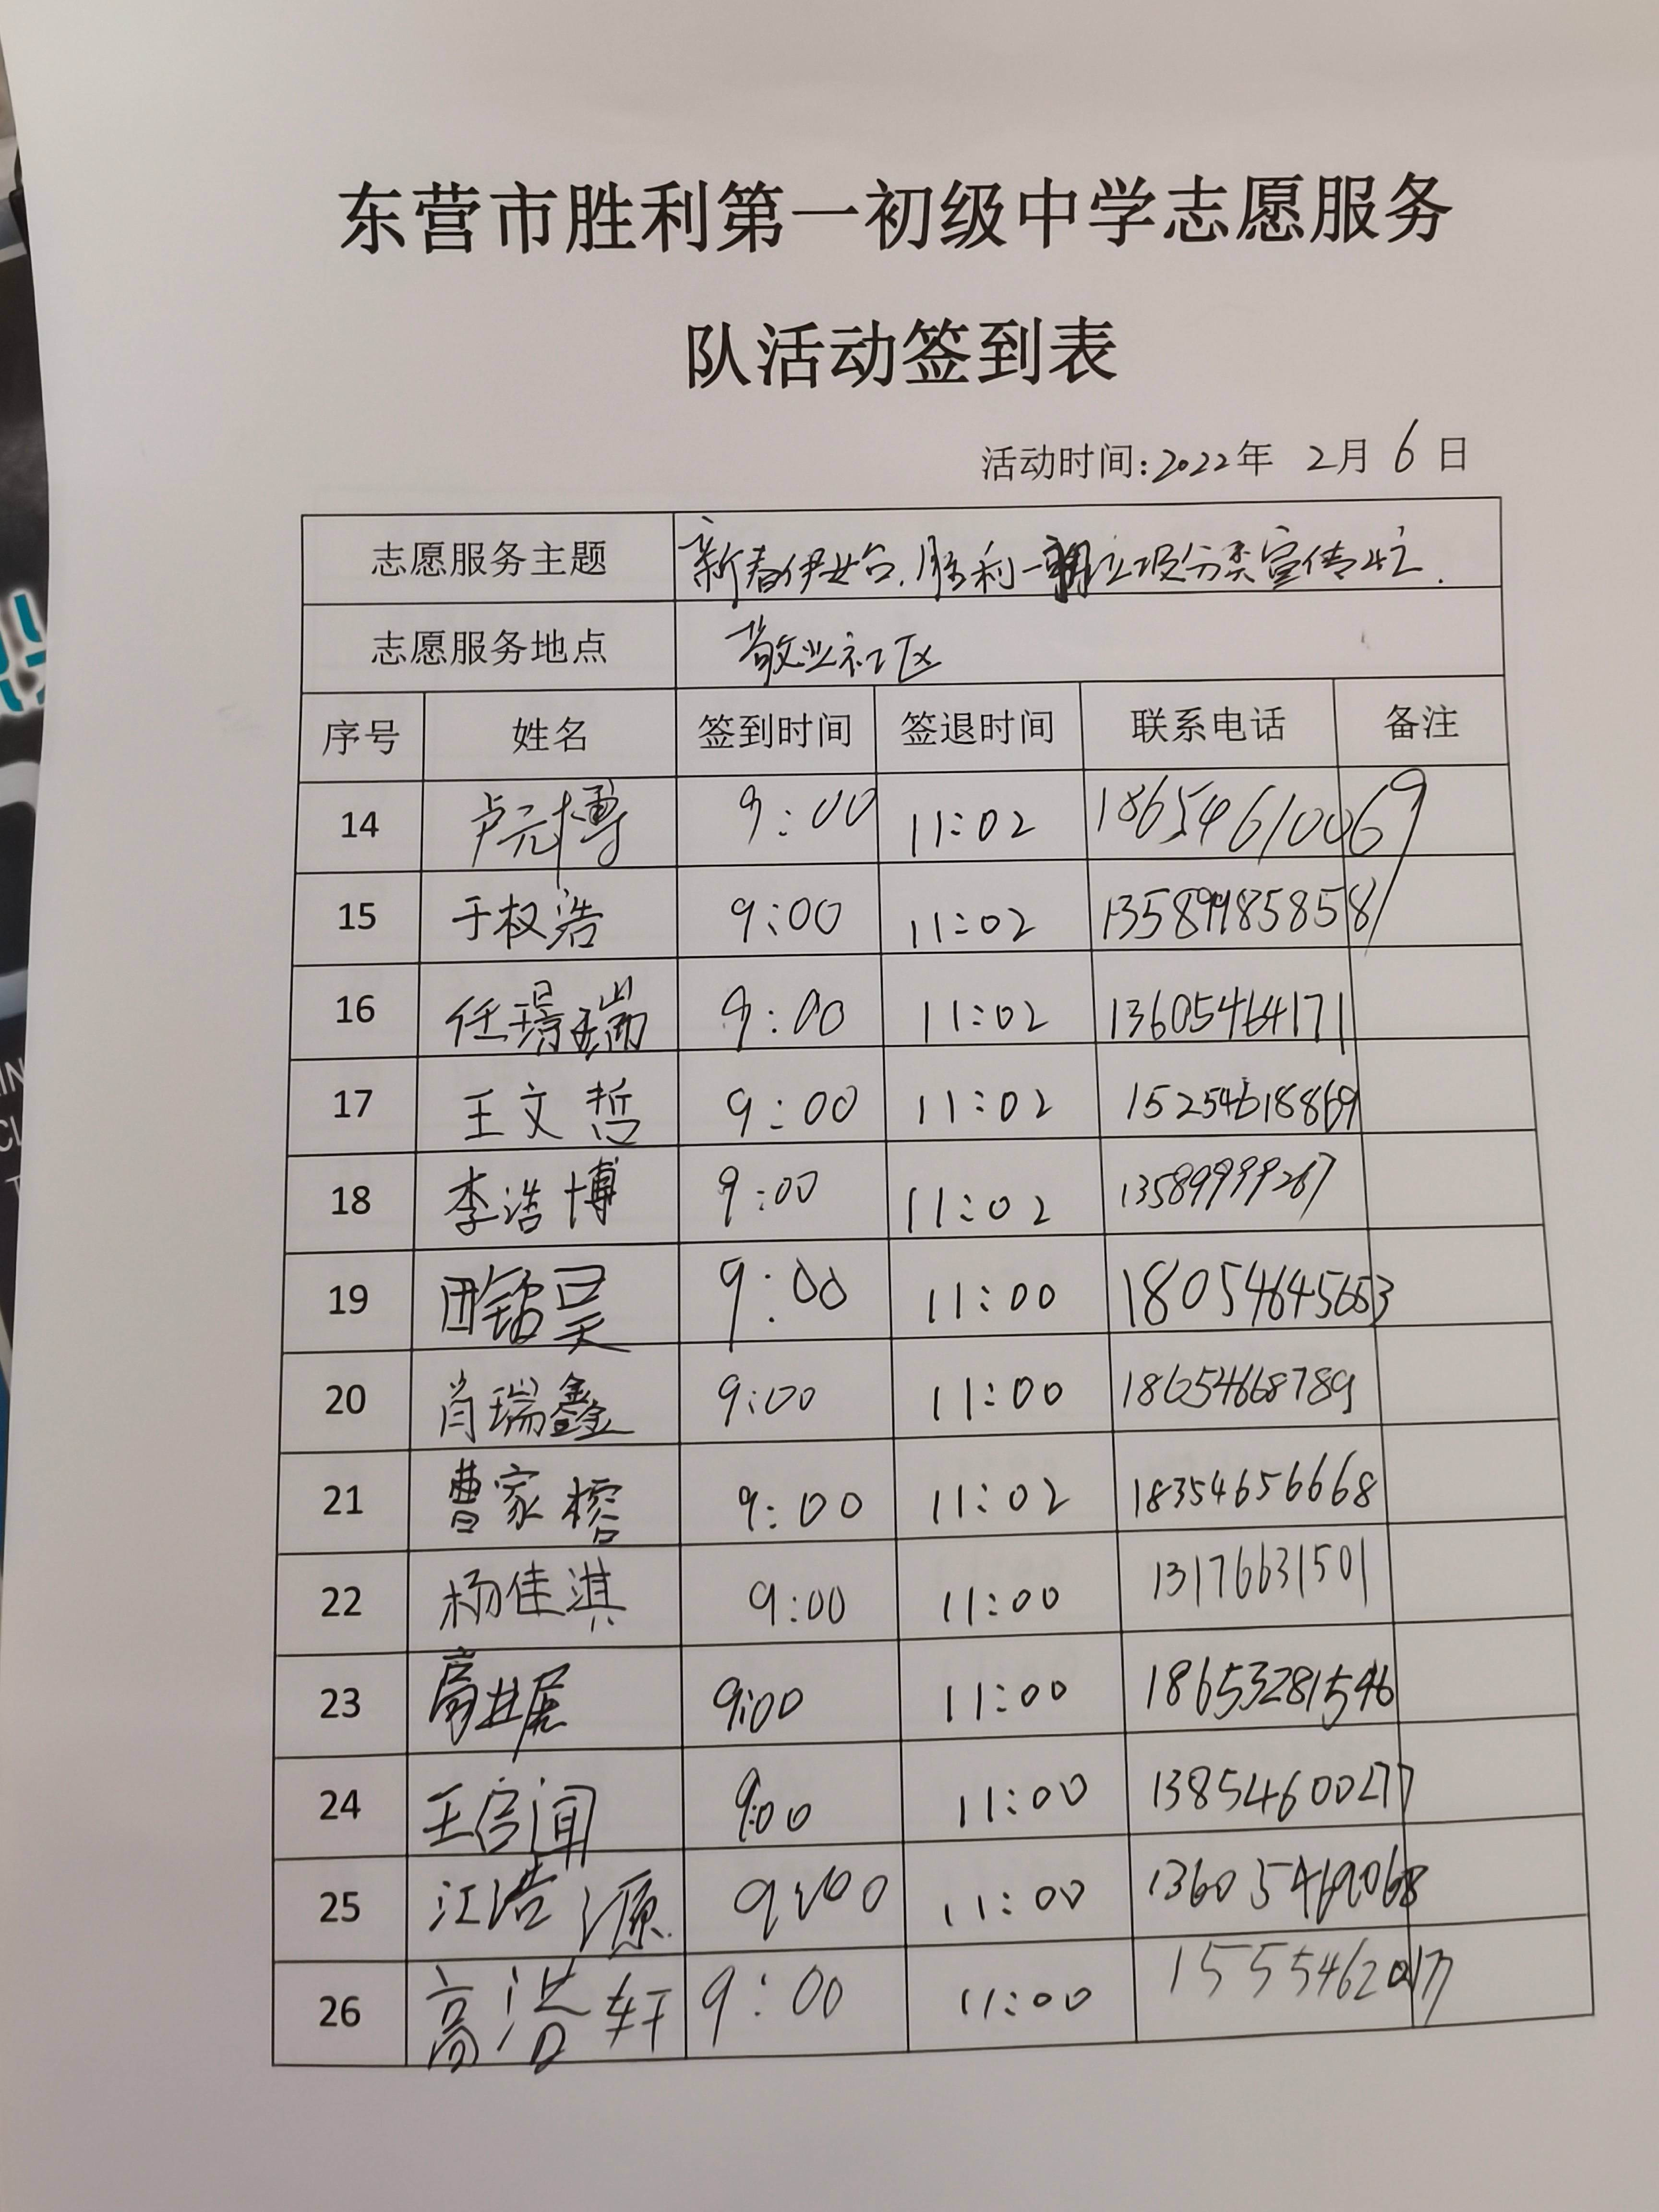 东营市胜利第一初级中学志愿服务
队活动签到表
活动时间:2022年 2月 6日
志愿服务主题 新春伊始,胜利一初垃圾分类宣传忙.
志愿服务地点 敬业社区
序号 姓名 签到时间 签退时间 联系电话 备注
14 卢元博 9:00 11:02 18654610069
15 于权浩 9:00 11:02 13589985858
16 任璟瑞 9:00 11:02 13605464171
17 王文哲 9:00 11:02 15254618869
18 李浩博 9:00 11:02 13589999267
19 田铭昊 9:00 11:00 18054645653
20 肖瑞鑫 9:00 11:00 18654668789
21 曹家榕 9:00 11:02 18354656668
22 杨佳淇 9:00 11:00 13176631501
23 9:00 11:00 18653281546
24 9:00 11:00 13854600277
25 江浩源 9:00 11:00 13605469068
26 高浩轩 9:00 11:00